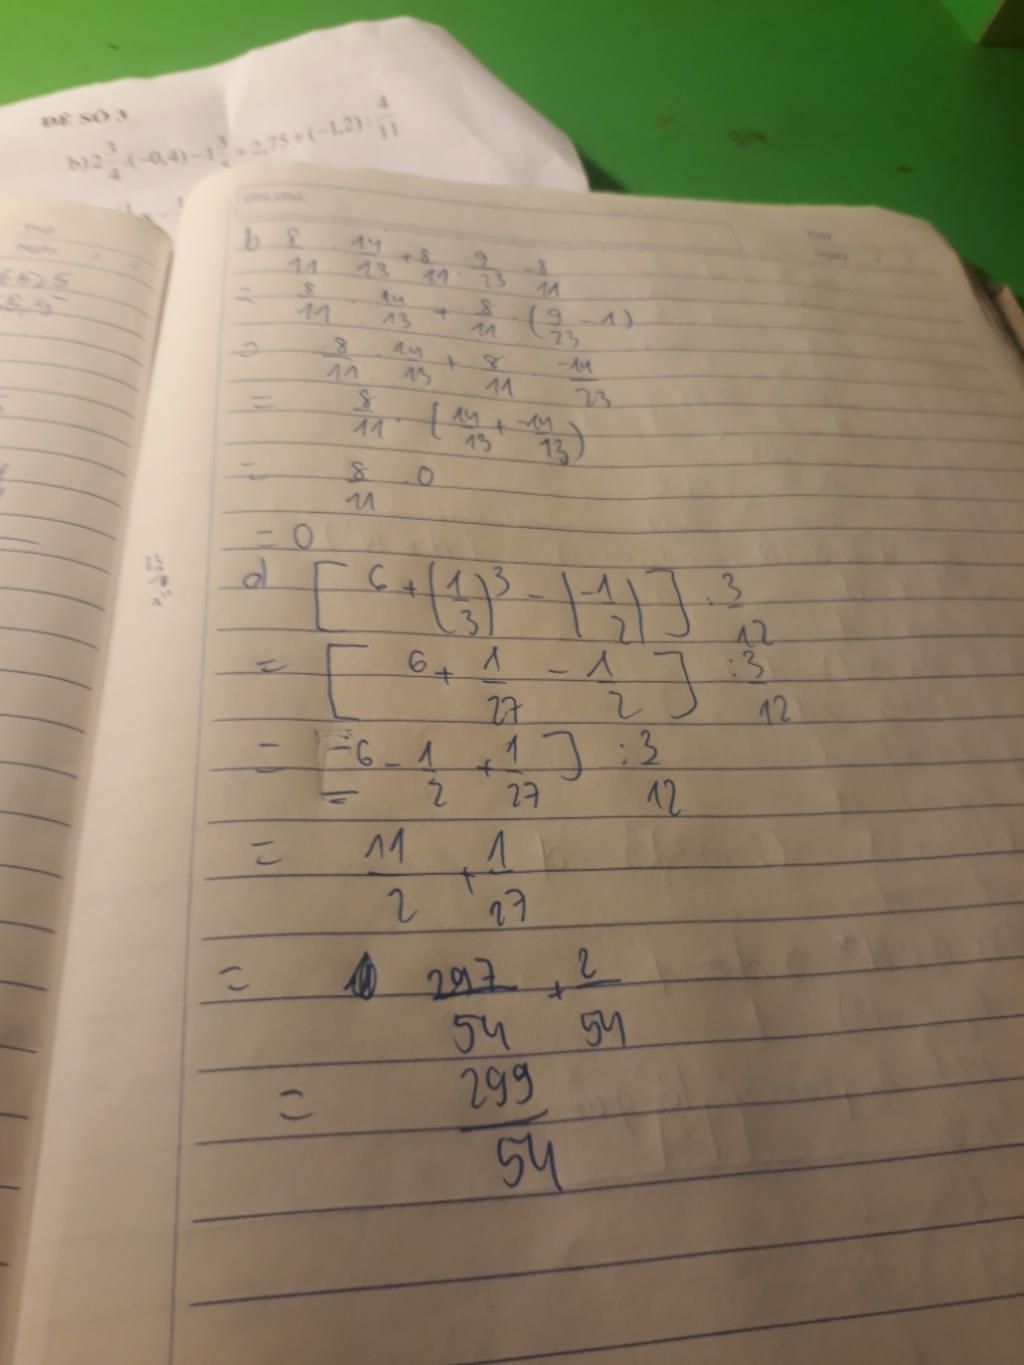 ĐỀ SỐ 3
b) 2 3/4 .(−0,4) − 1 3/5 + 2,75 + (−1,2) : 4/11
b 8/11 . 14/13 + 8/11 . 9/23 - 8/11
= 8/11 . 14/13 + 8/11 . (9/23 - 1)
= 8/11 . 14/13 + 8/11 . -14/23
= 8/11 . (14/13 + -14/13)
= 8/11 . 0
= 0
d [ 6 + (1/3)^3 - |-1/2| ] : 3/12
= [ 6 + 1/27 - 1/2 ] : 3/12
= 6 - 1/2 + 1/27 ] : 3/12
= 11/2 + 1/27
= 297/54 + 2/54
= 299/54